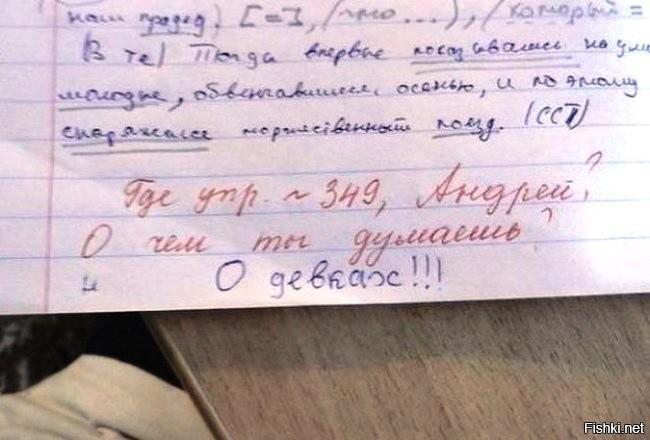 наш прадед, [=], (что...), (который =
(В те) Тогда впервые показывались на ули
молодые, обвенчавшиеся осенью, и поэтому
снаряжался торжественный поезд. (ССП)
Где упр. ~ 349, Андрей?
О чем ты думаешь?
О девках!!!
Fishki.net